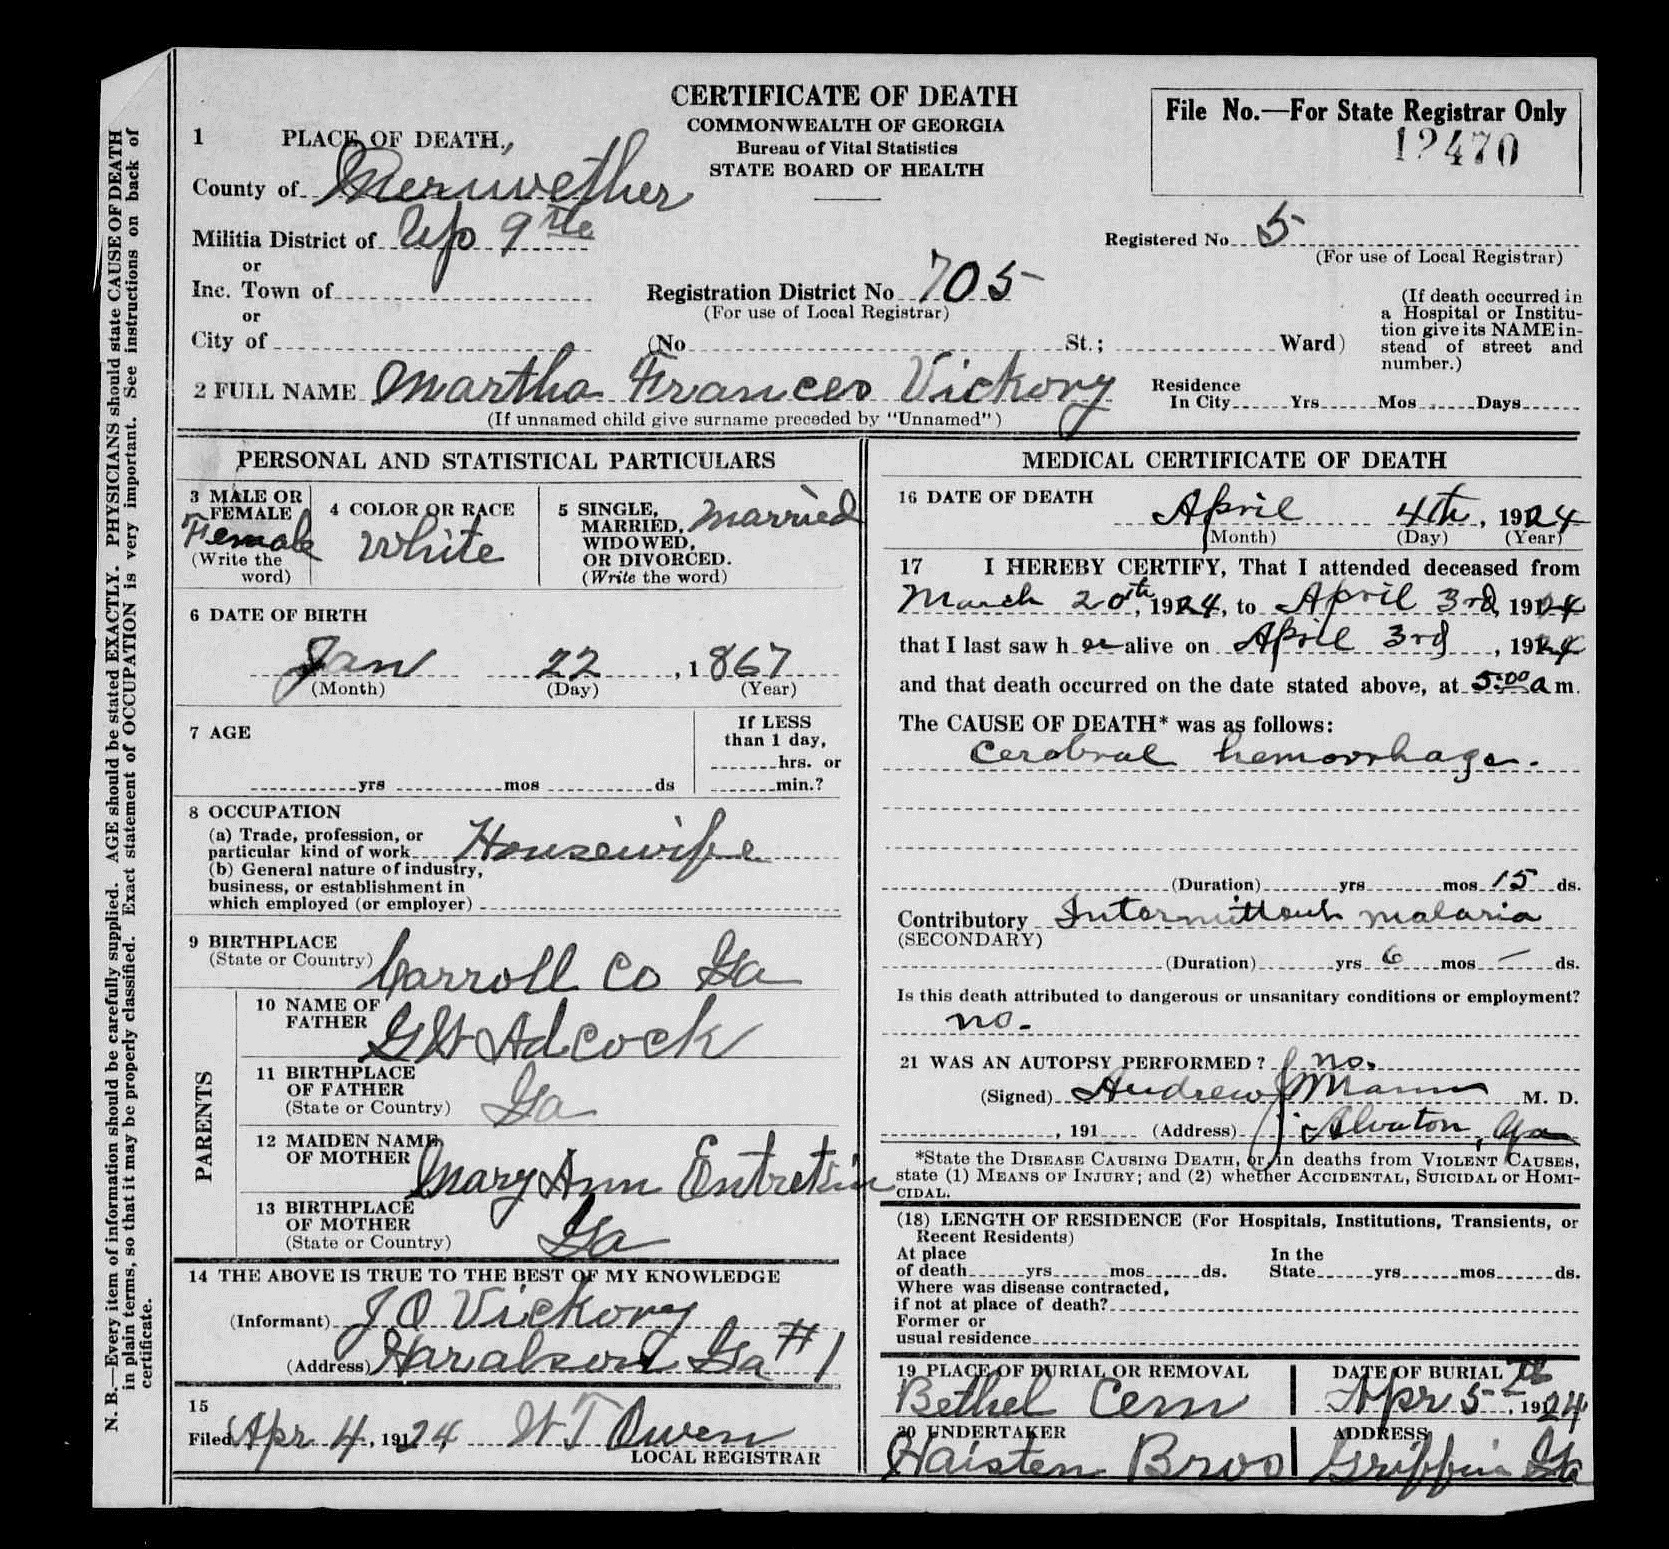 CERTIFICATE OF DEATH
COMMONWEALTH OF GEORGIA
Bureau of Vital Statistics
STATE BOARD OF HEALTH
File No.—For State Registrar Only
12470
1 PLACE OF DEATH.
County of Meriwether
Militia District of Up 9th
or
Inc. Town of
or
City of
Registered No. 5
(For use of Local Registrar)
Registration District No. 705
(For use of Local Registrar)
(No St.; Ward)
(If death occurred in
a Hospital or Institu-
tion give its NAME in-
stead of street and
number.)
2 FULL NAME Martha Frances Vickory
(If unnamed child give surname preceded by "Unnamed")
Residence
In City Yrs Mos Days
PERSONAL AND STATISTICAL PARTICULARS
3 MALE OR
FEMALE
Female
(Write the
word)
4 COLOR OR RACE
White
5 SINGLE,
MARRIED,
WIDOWED,
OR DIVORCED.
(Write the word)
Married
6 DATE OF BIRTH
Jan 22, 1867
(Month) (Day) (Year)
7 AGE
yrs mos ds
If LESS
than 1 day,
hrs. or
min.?
8 OCCUPATION
(a) Trade, profession, or
particular kind of work Housewife
(b) General nature of industry,
business, or establishment in
which employed (or employer)
9 BIRTHPLACE
(State or Country) Carroll Co Ga
PARENTS
10 NAME OF
FATHER G W Adcock
11 BIRTHPLACE
OF FATHER
(State or Country) Ga
12 MAIDEN NAME
OF MOTHER Mary Ann Entrekin
13 BIRTHPLACE
OF MOTHER
(State or Country) Ga
14 THE ABOVE IS TRUE TO THE BEST OF MY KNOWLEDGE
(Informant) J O Vickory
(Address) Haralson Ga #1
15
Filed Apr 4, 1924 W T Owen
LOCAL REGISTRAR
MEDICAL CERTIFICATE OF DEATH
16 DATE OF DEATH
April 4th, 1924
(Month) (Day) (Year)
17 I HEREBY CERTIFY, That I attended deceased from
March 20th, 1924, to April 3rd, 1924
that I last saw h er alive on April 3rd, 1924
and that death occurred on the date stated above, at 5:00 a m.
The CAUSE OF DEATH* was as follows:
Cerebral hemorrhage.
(Duration) yrs mos 15 ds.
Contributory Intermittent malaria
(SECONDARY)
(Duration) yrs 6 mos — ds.
Is this death attributed to dangerous or unsanitary conditions or employment?
no.
21 WAS AN AUTOPSY PERFORMED? no.
(Signed) Andrew J Mann M. D.
, 191 (Address) Alvaton, Ga
*State the DISEASE CAUSING DEATH, or in deaths from VIOLENT CAUSES,
state (1) MEANS OF INJURY; and (2) whether ACCIDENTAL, SUICIDAL or HOMI-
CIDAL.
(18) LENGTH OF RESIDENCE (For Hospitals, Institutions, Transients, or
Recent Residents)
At place
of death yrs mos ds.
In the
State yrs mos ds.
Where was disease contracted,
if not at place of death?
Former or
usual residence
19 PLACE OF BURIAL OR REMOVAL
Bethel Cem
DATE OF BURIAL
Apr 5th, 1924
20 UNDERTAKER
Haisten Bros
ADDRESS
Griffin Ga
N. B.—Every item of information should be carefully supplied. AGE should be stated EXACTLY. PHYSICIANS should state CAUSE OF DEATH
in plain terms, so that it may be properly classified. Exact statement of OCCUPATION is very important. See instructions on back of
certificate.